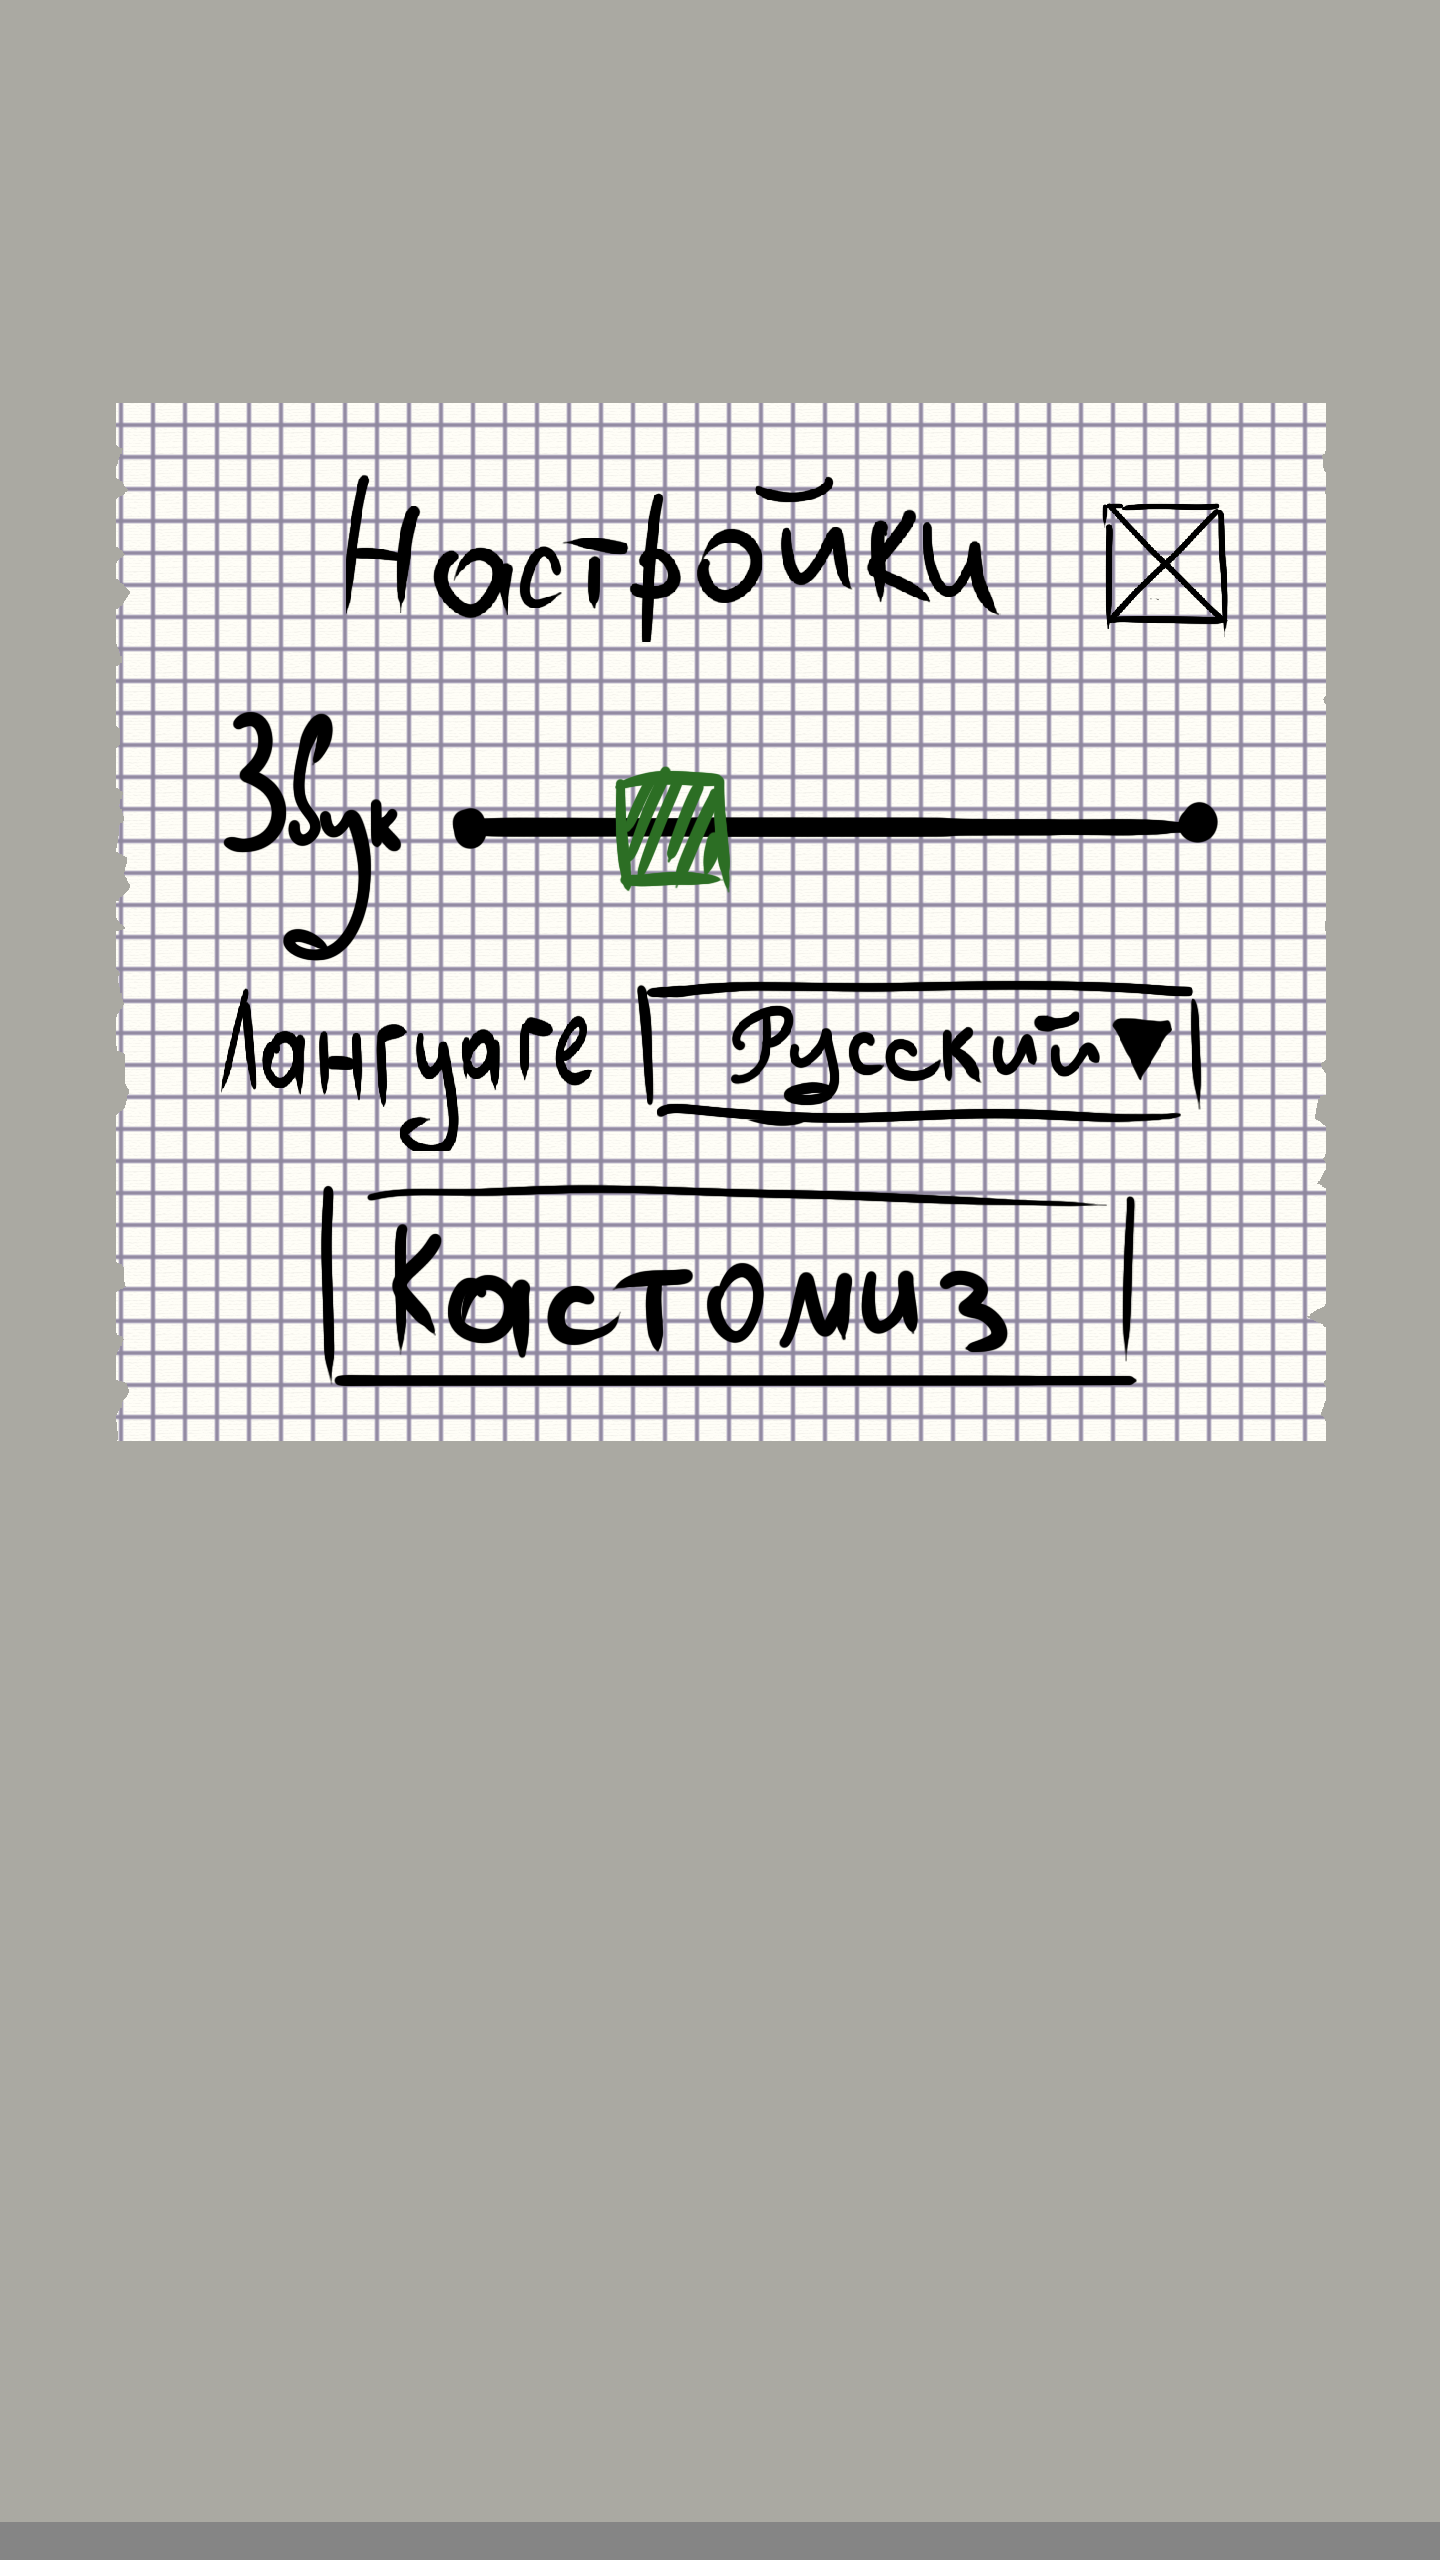 Настройки
Звук
Лангуаге Русский
Кастомиз